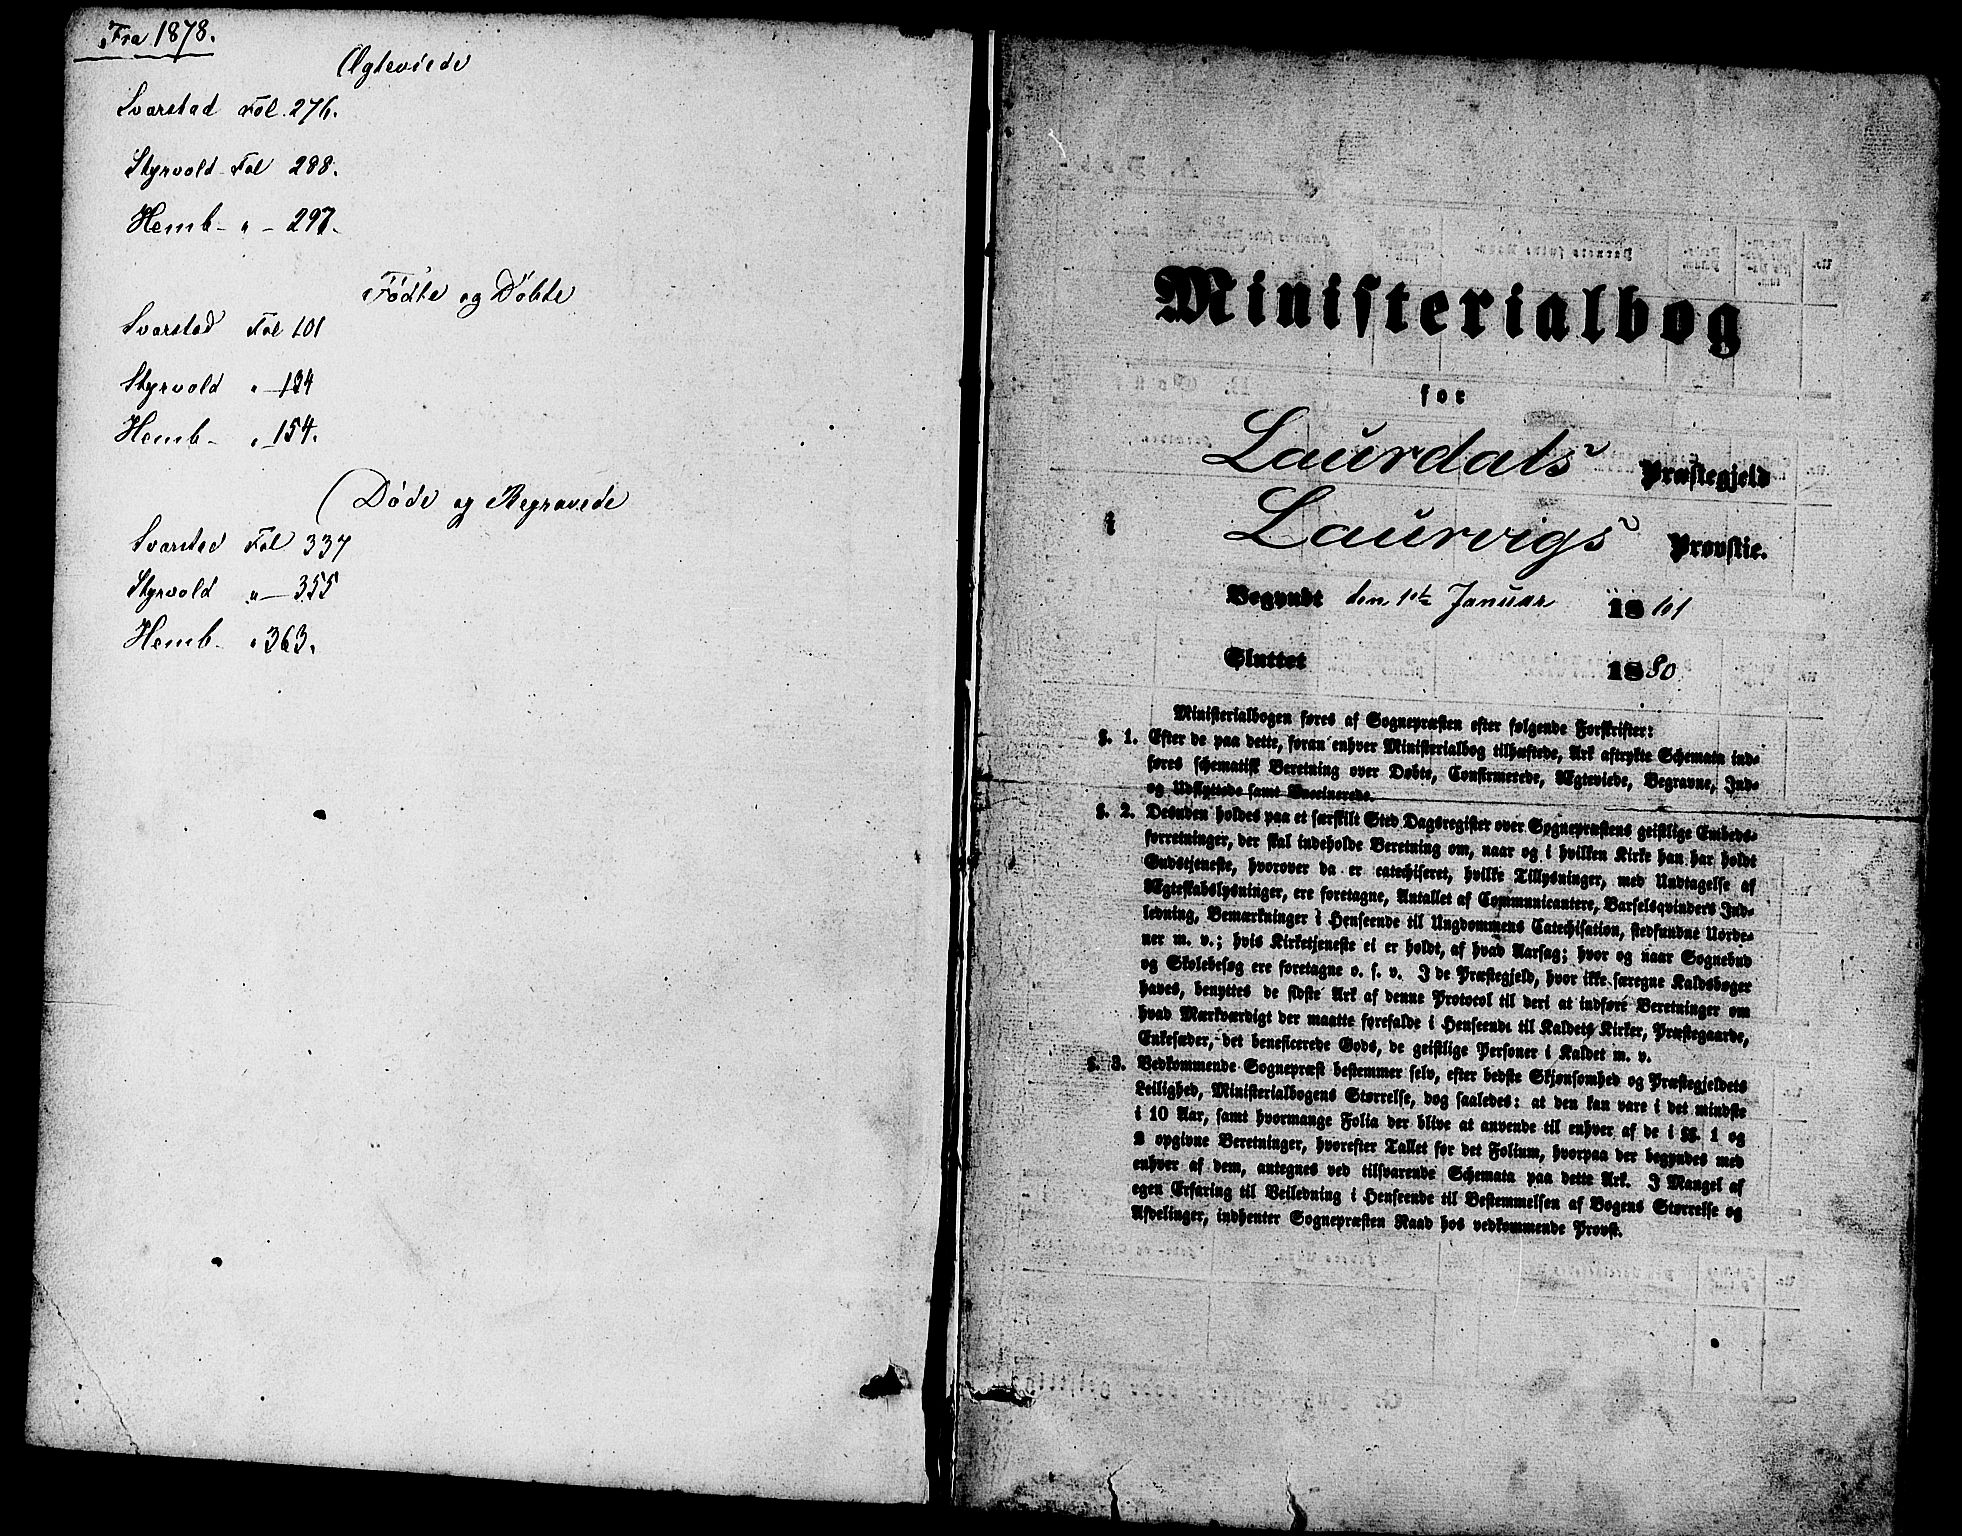 Fra 1878.
Ægteviede
Svarstad Fol. 276.
Styrvold Fol 288.
Hemb - " - 297.
Fødte og Døbte
Svarstad Fol 101
Styrvold " 134
Hemb - " 154.
Døde og Begravede
Svarstad Fol 337
Styrvold " 355
Hemb - " 363.
Ministerialbog
for
Laurdals Præstegjeld
i Laurvigs Provstie.
Begyndt den 1ste Januar 1861
Sluttet 1880.
Ministerialbogen føres af Sognepræsten efter følgende Forskrifter:
§. 1. Efter de paa dette, foran enhver Ministerialbog tilhæftede, Ark aftrykte Schemata ind-
føres schematisk Beretning over Døbte, Confirmerede, Ægteviede, Begravne, Ind-
og Udflyttede samt Vaccinerede.
§. 2. Desuden holdes paa et særskilt Sted Dagsregister over Sognepræstens geistlige Embeds-
forretninger, der skal indeholde Beretning om, naar og i hvilken Kirke han har holdt
Gudstjeneste, hvorover da er catechiseret, hvilke Tillysninger, med Undtagelse af
Ægteskabslysninger, ere foretagne, Antallet af Communicantere, Barselsqvinders Ind-
ledning, Bemærkninger i Henseende til Ungdommens Catechisation, stedfundne Uorde-
ner m. v.; hvis Kirketjeneste ei er holdt, af hvad Aarsag; hvor og naar Sognebud
og Skolebesøg ere foretagne o. s. v. I de Præstegjeld, hvor ikke særegne Kaldsbøger
haves, benyttes de sidste Ark af denne Protocol til deri at indføre Beretninger om
hvad Mærkværdigt der maatte forefalde i Henseende til Kaldets Kirker, Præstegaarde,
Enkesæder, det beneficerede Gods, de geistlige Personer i Kaldet m. v.
§. 3. Vedkommende Sognepræst bestemmer selv, efter bedste Skjønsomhed og Præstegjeldets
Leilighed, Ministerialbogens Størrelse, dog saaledes: at den kan vare i det mindste
i 10 Aar, samt hvormange Folia der blive at anvende til enhver af de i §§. 1 og
2 opgivne Beretninger, hvorefter Tallet for det Folium, hvorpaa der begyndes med
enhver af dem, antegnes ved tilsvarende Schemata paa dette Ark. I Mangel af
egen Erfaring til Veiledning i Henseende til Bestemmelsen af Bogens Størrelse og
Afdelinger, indhenter Sognepræsten Raad hos vedkommende Provst.